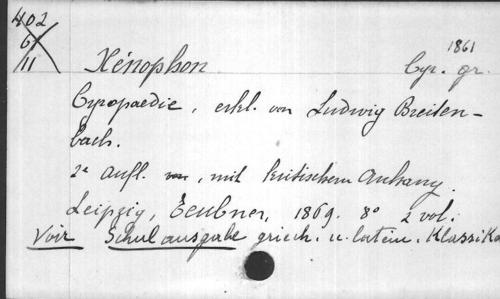 402
61
11
1861
Xénophon Cyr. gr.
Cyropaedie, erkl. von Ludwig Breiten-
bach.
2e Aufl. , mit kritischem Anhang.
Leipzig, Teubner, 1869. 8° 2 vol.
Voir Schulausgabe griech. u. latein. Klassike